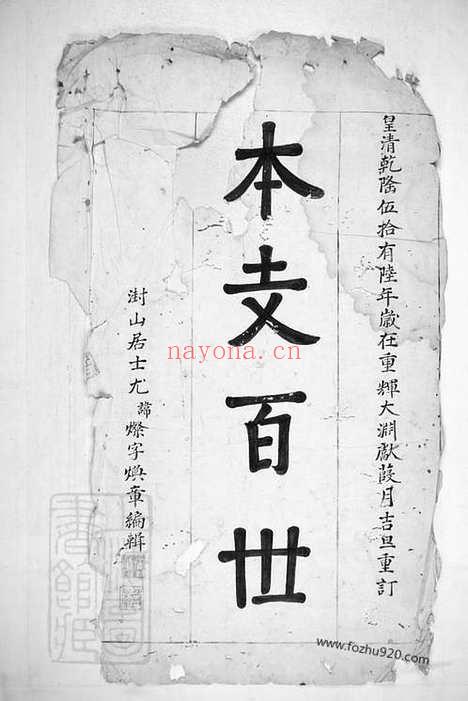 皇清乾隆伍拾有陸年歲在重輝大淵獻葭月吉旦重訂
本支百世
澍山居士尤諱燦字煥章編輯
nayona.cn
www.fozhu920.com